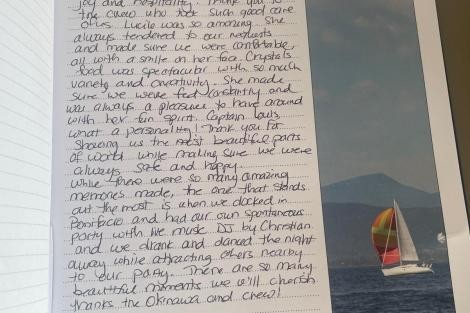 joy and hospitality. Thank you to
the crew who took such good care
of us. Lucile was so amazing. She
always tendered to our requests
and made sure we were comfortable,
all with a smile on her face. Crystals
food was spectacular with so much
variety and creativity. She made
sure we were fed constantly and
was always a pleasure to have around
with her fun spirit. Captain Louis,
what a personality! Thank you for
showing us the most beautiful parts
of world while making sure we were
always safe and happy.
While there were so many amazing
memories made, the one that stands
out the most is when we docked in
Bonifacio and had our own spontaneous
party with live music DJ by Christian
and we drank and danced the night
away while attracting others nearby
to our party. There are so many
beautiful moments we will cherish
thanks the Okinawa and crew!